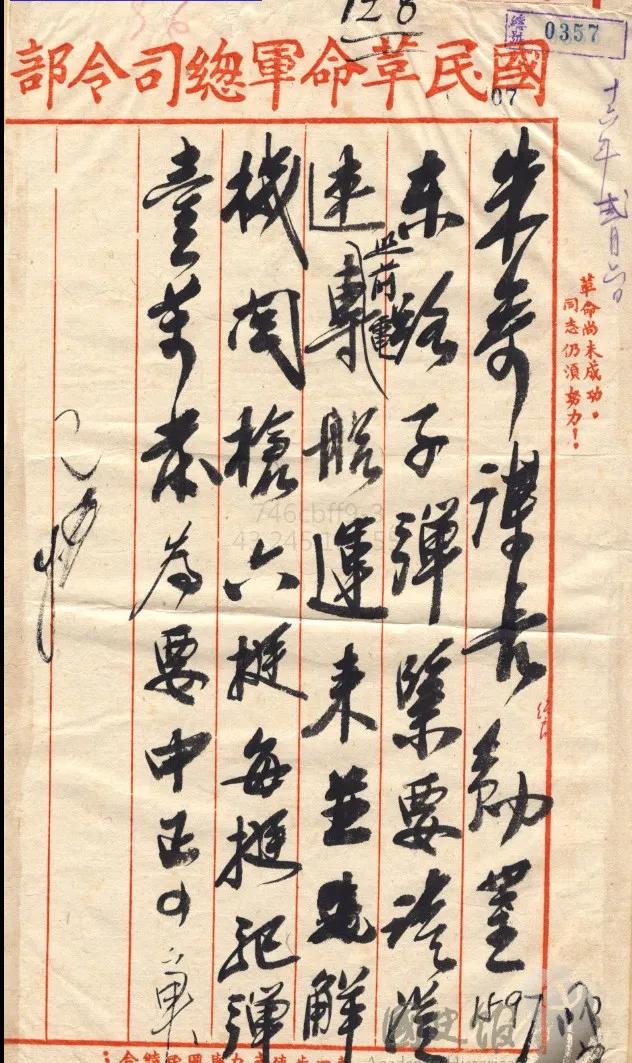 128
總號 0357
國民革命軍總司令部
07
十六年弍月六日
革命尚未成功。
同志仍須努力！
朱參謀長勛鑒
1597
东路子彈緊要請從
照前電
速專船運來並先解
機関槍六挺每挺配彈
壹萬發為要中正叩